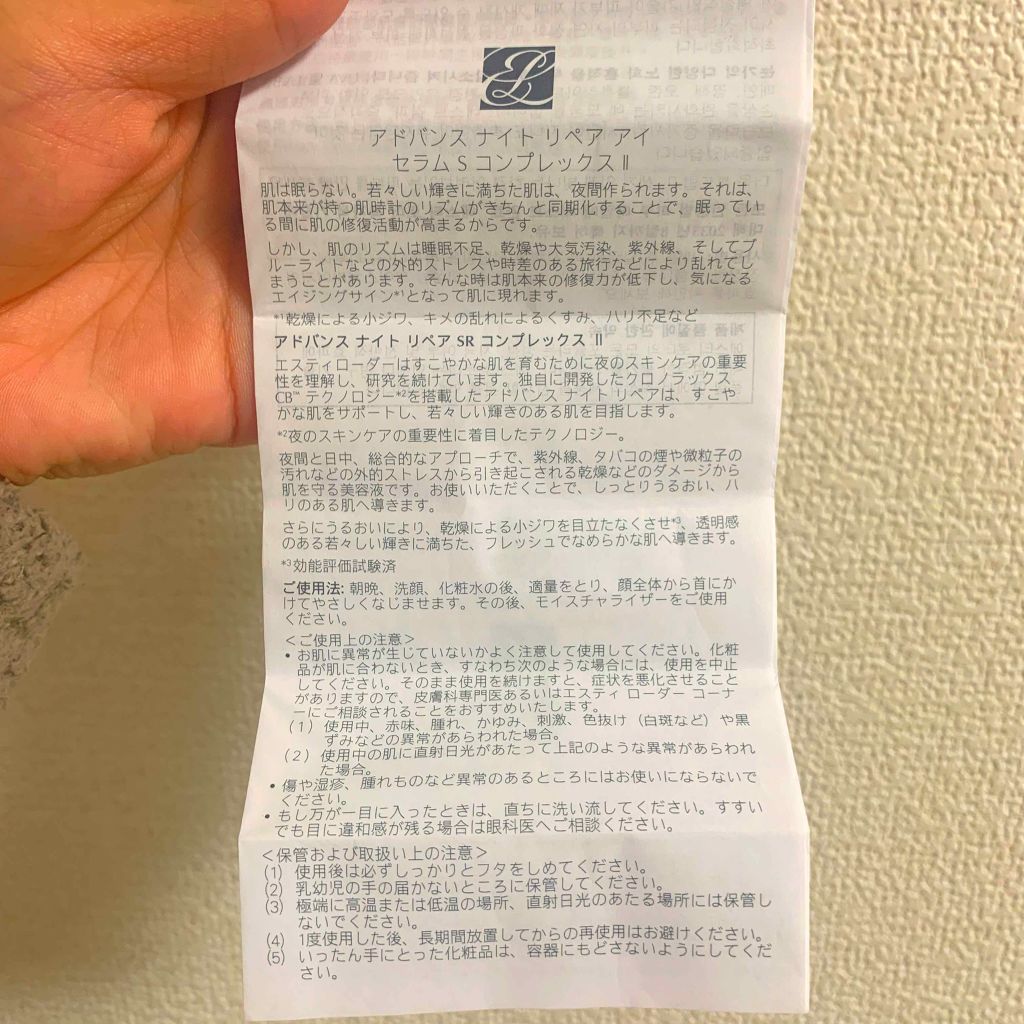 アドバンス ナイト リペア アイ
セラム S コンプレックス II
肌は眠らない。若々しい輝きに満ちた肌は、夜間作られます。それは、
肌本来が持つ肌時計のリズムがきちんと同期化することで、眠ってい
る間に肌の修復活動が高まるからです。
しかし、肌のリズムは睡眠不足、乾燥や大気汚染、紫外線、そしてブ
ルーライトなどの外的ストレスや時差のある旅行などにより乱れてし
まうことがあります。そんな時は肌本来の修復力が低下し、気になる
エイジングサイン*1となって肌に現れます。
*1乾燥による小ジワ、キメの乱れによるくすみ、ハリ不足など
アドバンス ナイト リペア SR コンプレックス II
エスティローダーはすこやかな肌を育むために夜のスキンケアの重要
性を理解し、研究を続けています。独自に開発したクロノラックス
CB™ テクノロジー*2を搭載したアドバンス ナイト リペアは、すこや
かな肌をサポートし、若々しい輝きのある肌を目指します。
*2夜のスキンケアの重要性に着目したテクノロジー。
夜間と日中、総合的なアプローチで、紫外線、タバコの煙や微粒子の
汚れなどの外的ストレスから引き起こされる乾燥などのダメージから
肌を守る美容液です。お使いいただくことで、しっとりうるおい、ハ
リのある肌へ導きます。
さらにうるおいにより、乾燥による小ジワを目立たなくさせ*3、透明感
のある若々しい輝きに満ちた、フレッシュでなめらかな肌へ導きます。
*3効能評価試験済
ご使用法: 朝晩、洗顔、化粧水の後、適量をとり、顔全体から首にか
けてやさしくなじませます。その後、モイスチャライザーをご使用
ください。
＜ご使用上の注意＞
• お肌に異常が生じていないかよく注意して使用してください。化粧
品が肌に合わないとき、すなわち次のような場合には、使用を中止
してください。そのまま使用を続けますと、症状を悪化させること
がありますので、皮膚科専門医あるいはエスティ ローダー コーナ
ーにご相談されることをおすすめいたします。
(1) 使用中、赤味、腫れ、かゆみ、刺激、色抜け（白斑など）や黒
ずみなどの異常があらわれた場合。
(2) 使用中の肌に直射日光があたって上記のような異常があらわれ
た場合。
• 傷や湿疹、腫れものなど異常のあるところにはお使いにならないで
ください。
• もし万が一目に入ったときは、直ちに洗い流してください。すすい
でも目に違和感が残る場合は眼科医へご相談ください。
＜保管および取扱い上の注意＞
(1) 使用後は必ずしっかりとフタをしめてください。
(2) 乳幼児の手の届かないところに保管してください。
(3) 極端に高温または低温の場所、直射日光のあたる場所には保管し
ないでください。
(4) 1度使用した後、長期間放置してからの再使用はお避けください。
(5) いったん手にとった化粧品は、容器にもどさないようにしてくだ
さい。